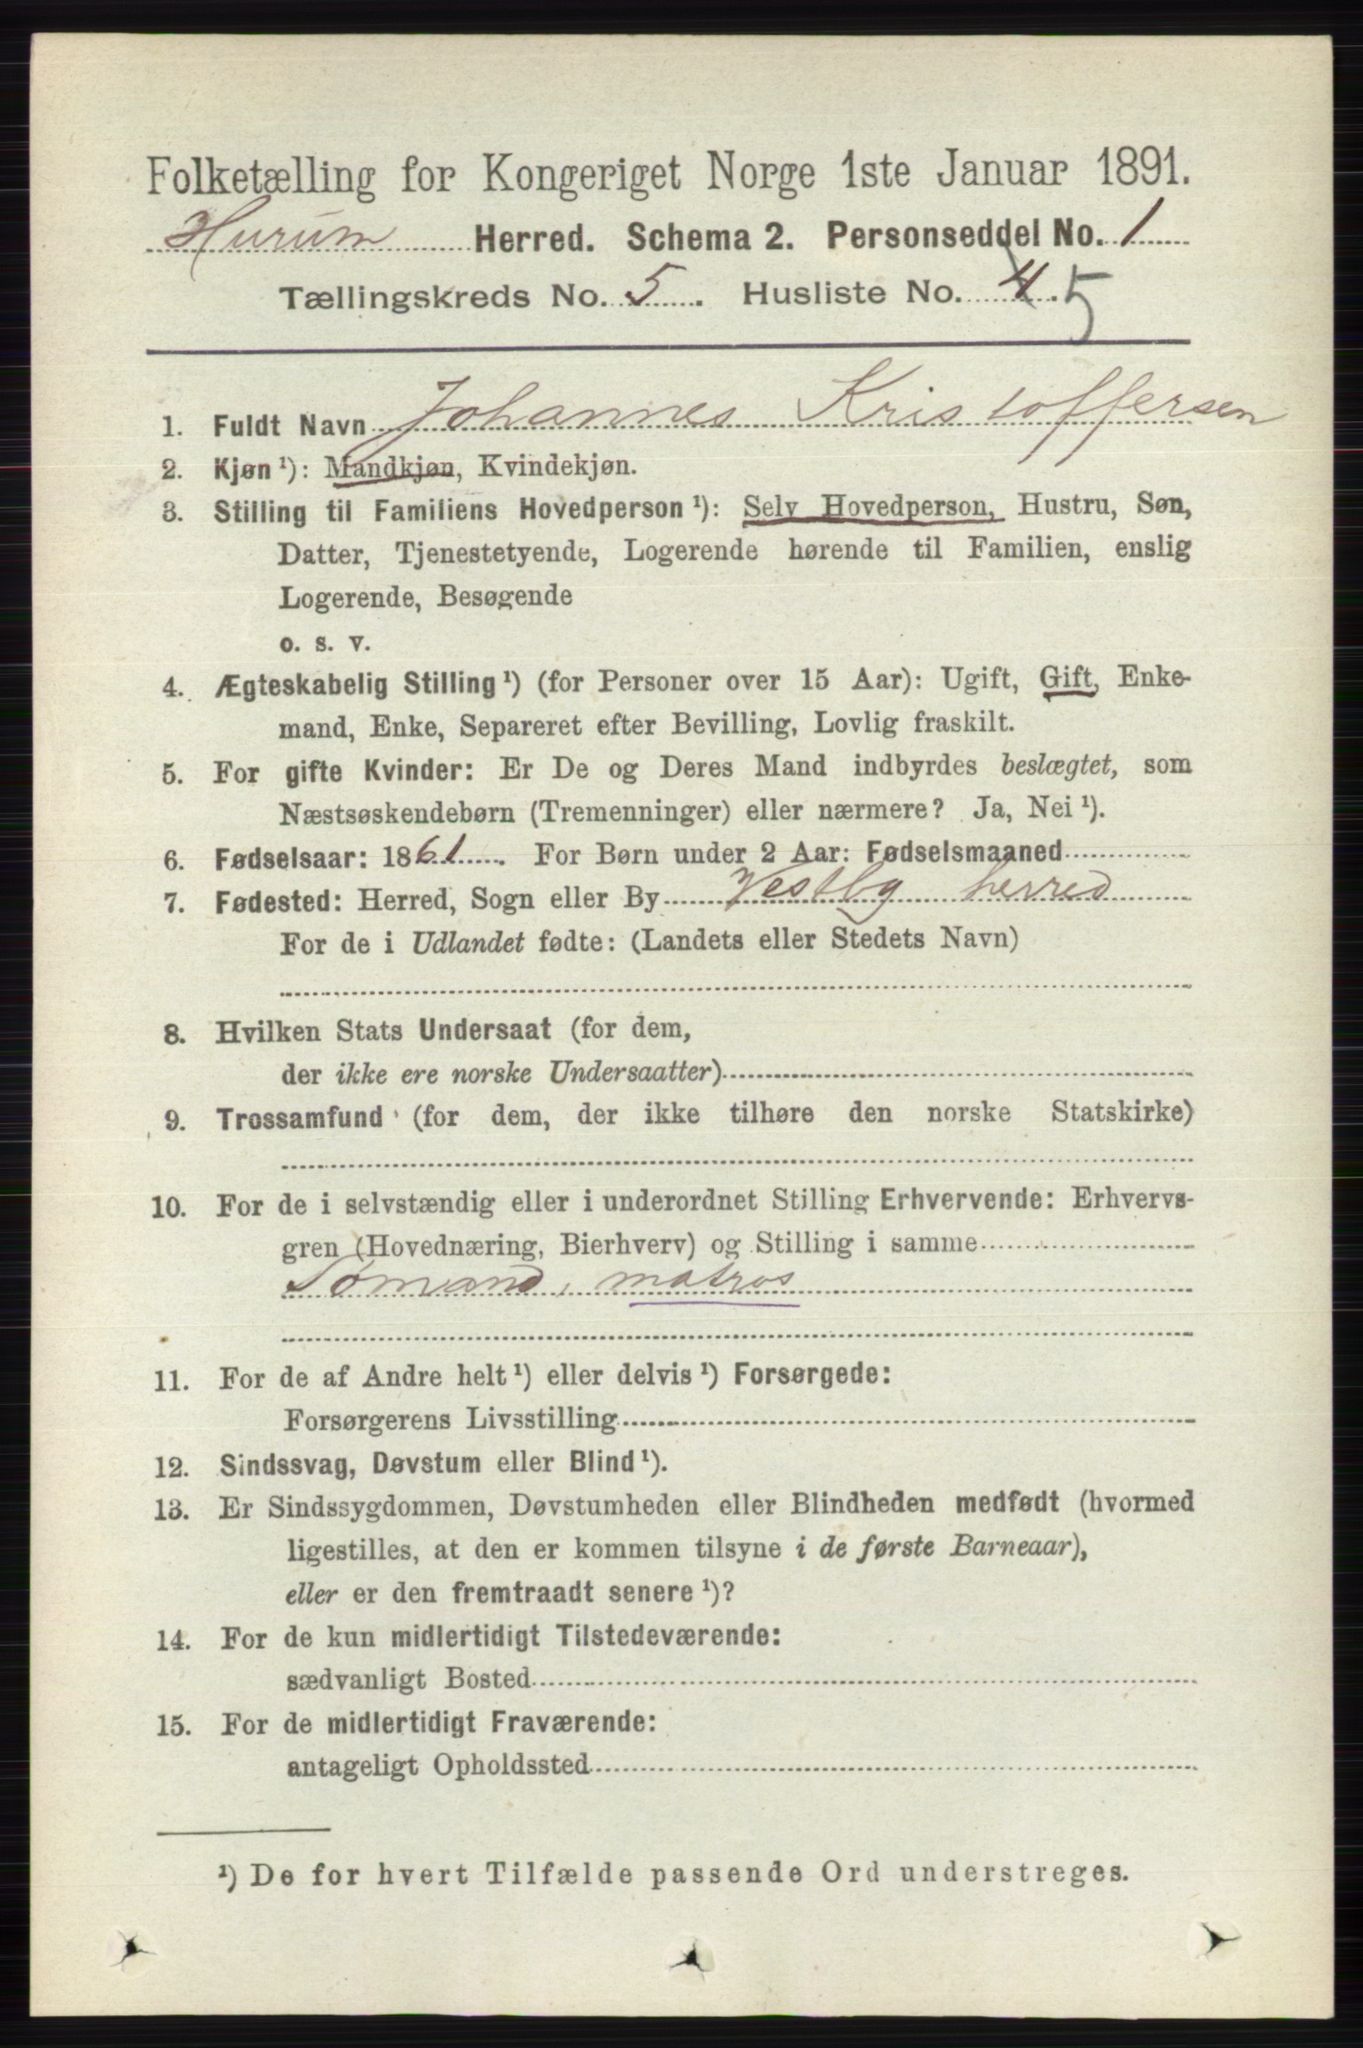 Folketælling for Kongeriget Norge 1ste Januar 1891.
Hurum Herred. Schema 2. Personseddel No. 1
Tællingskreds No. 5. Husliste No. 4. 5
1. Fuldt Navn Johannes Kristoffersen
2. Kjøn ¹): Mandkjøn, Kvindekjøn.
3. Stilling til Familiens Hovedperson ¹): Selv Hovedperson, Hustru, Søn,
Datter, Tjenestetyende, Logerende hørende til Familien, enslig
Logerende, Besøgende
o. s. v.
4. Ægteskabelig Stilling ¹) (for Personer over 15 Aar): Ugift, Gift, Enke-
mand, Enke, Separeret efter Bevilling, Lovlig fraskilt.
5. For gifte Kvinder: Er De og Deres Mand indbyrdes beslægtet, som
Næstsøskendebørn (Tremenninger) eller nærmere? Ja, Nei ¹).
6. Fødselsaar: 1861. For Børn under 2 Aar: Fødselsmaaned
7. Fødested: Herred, Sogn eller By Vestby herred
For de i Udlandet fødte: (Landets eller Stedets Navn)
8. Hvilken Stats Undersaat (for dem,
der ikke ere norske Undersaatter)
9. Trossamfund (for dem, der ikke tilhøre den norske Statskirke)
10. For de i selvstændig eller i underordnet Stilling Erhvervende: Erhvervs-
gren (Hovednæring, Bierhverv) og Stilling i samme
Sømand, matros
11. For de af Andre helt ¹) eller delvis ¹) Forsørgede:
Forsørgerens Livsstilling
12. Sindssvag, Døvstum eller Blind ¹).
13. Er Sindssygdommen, Døvstumheden eller Blindheden medfødt (hvormed
ligestilles, at den er kommen tilsyne i de første Barneaar),
eller er den fremtraadt senere ¹)?
14. For de kun midlertidigt Tilstedeværende:
sædvanligt Bosted
15. For de midlertidigt Fraværende:
antageligt Opholdssted
¹) De for hvert Tilfælde passende Ord understreges.